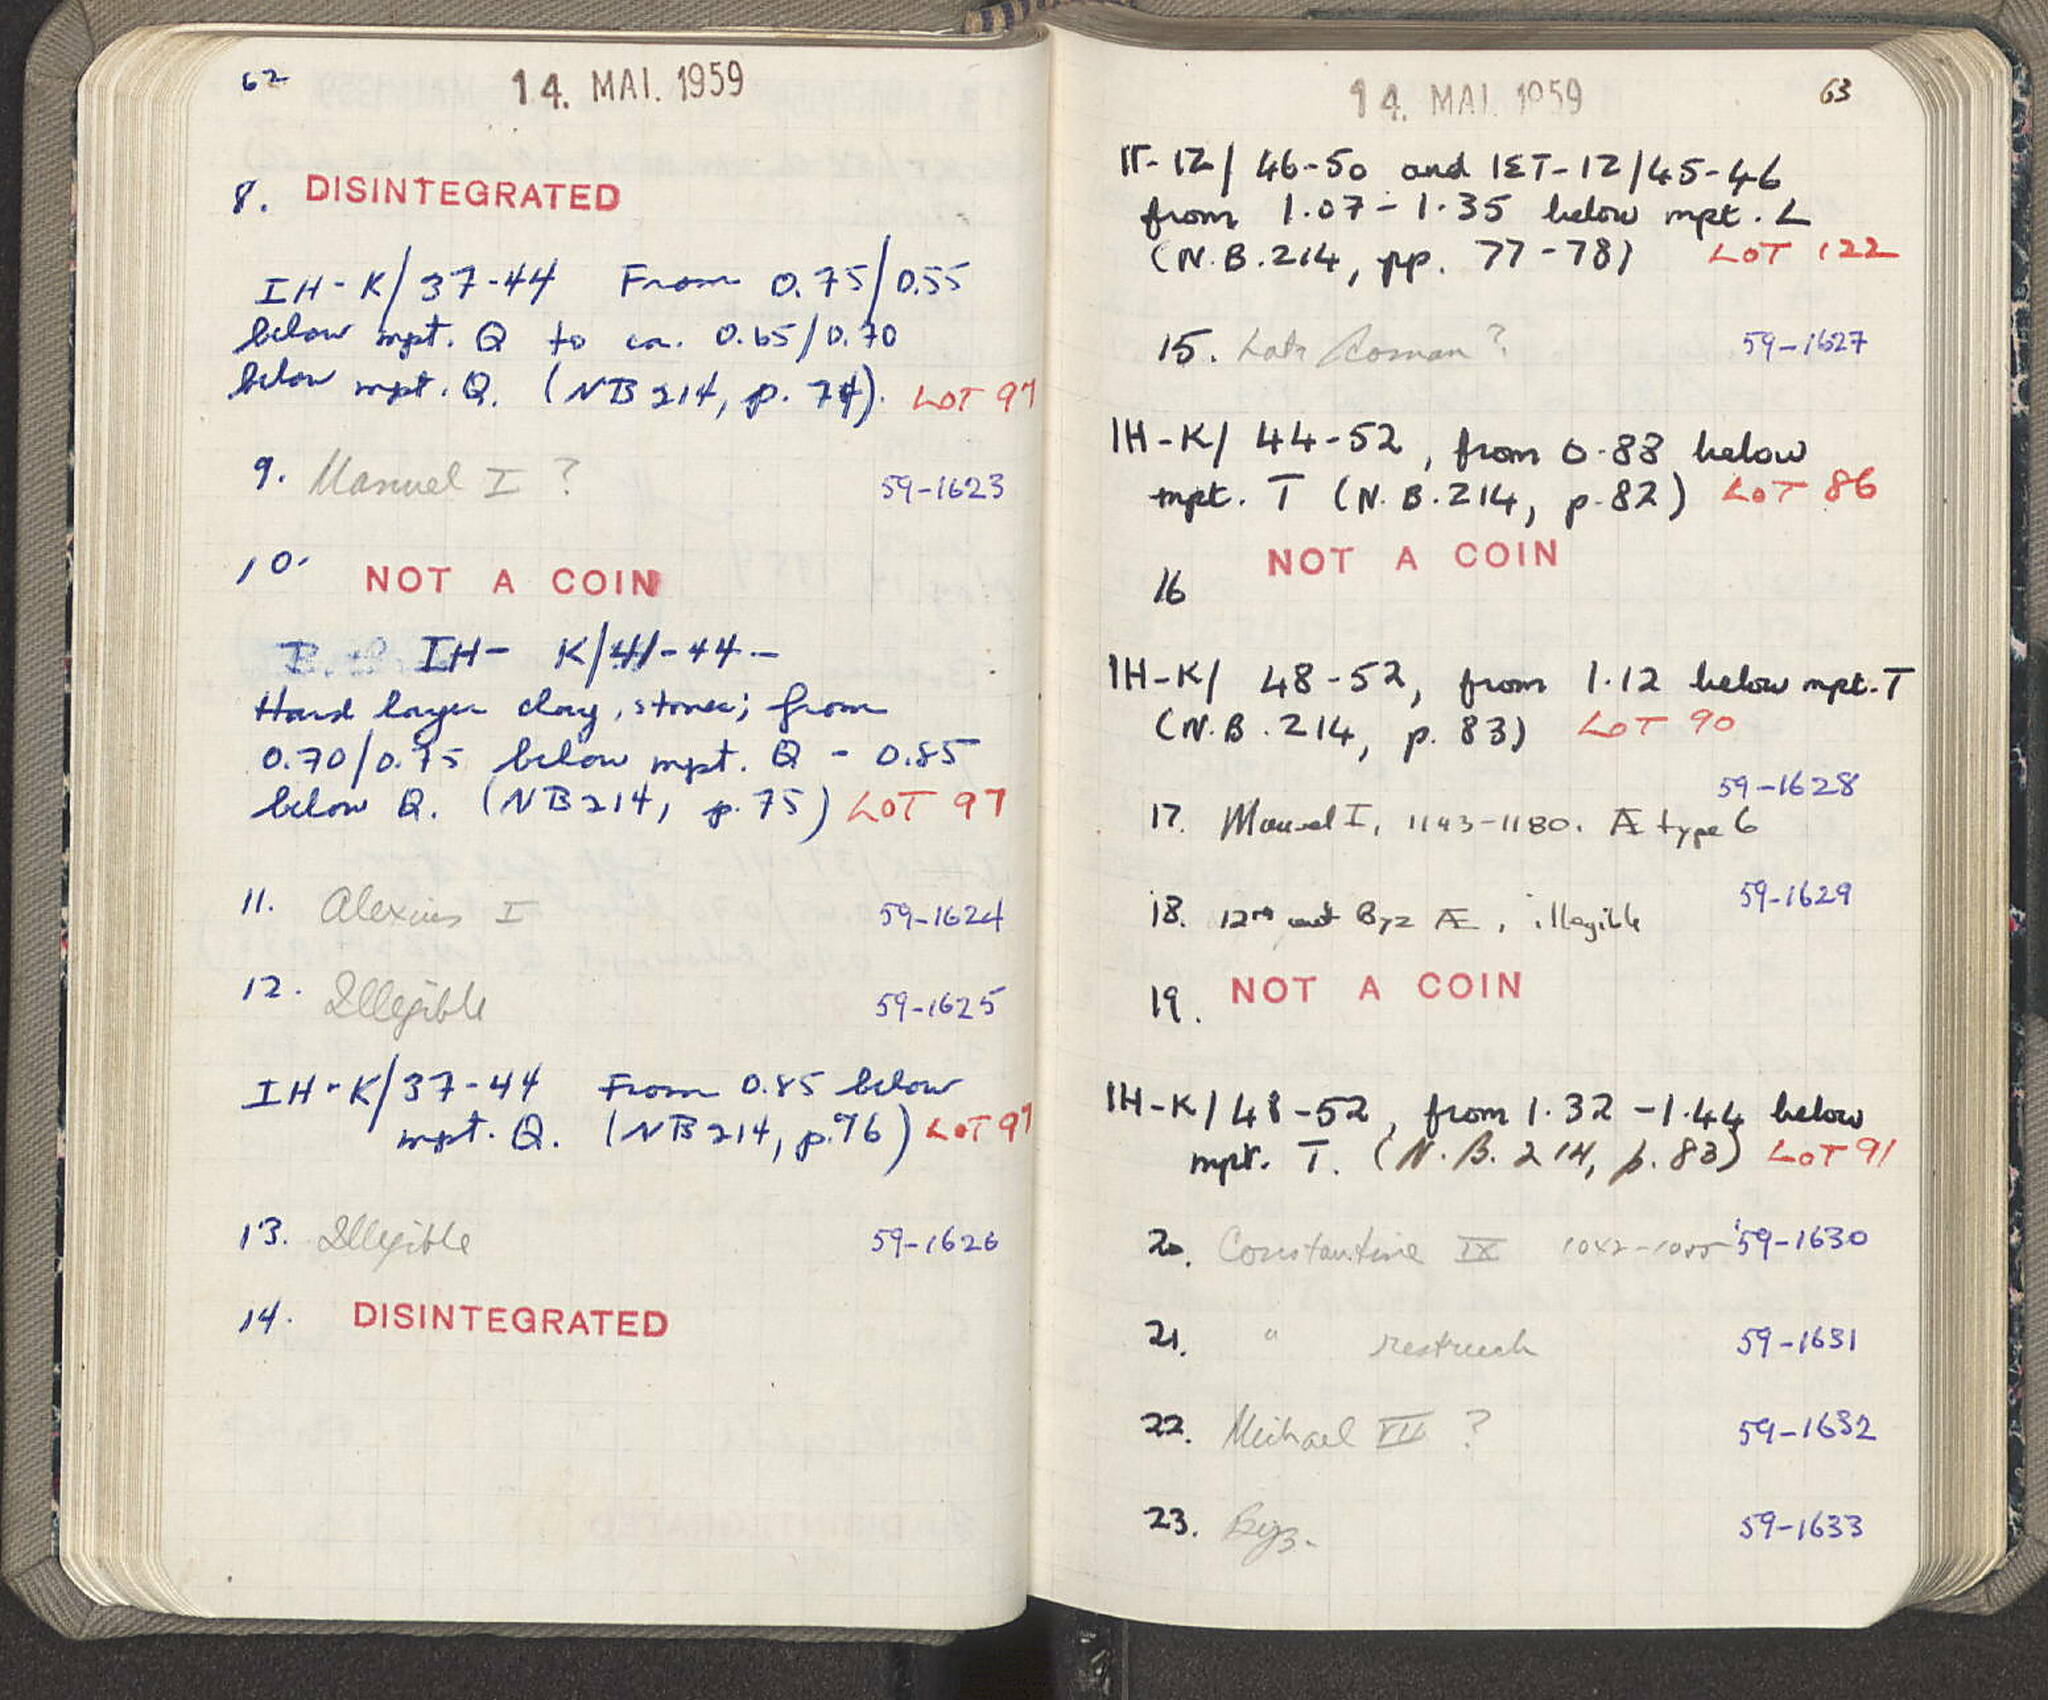 62
14. MAI. 1959
8. DISINTEGRATED
IH-K/37-44 From 0.75/0.55
below mpt. Q to ca. 0.65/0.70
below mpt. Q. (NB 214, p. 74). LOT 97
9. Manuel I ? 59-1623
10. NOT A COIN
IH- K/41-44-
Hard layer clay, stones; from
0.70/0.75 below mpt. Q - 0.85
below Q. (NB 214, p. 75) LOT 97
11. Alexius I 59-1624
12. Illegible 59-1625
IH-K/37-44 From 0.85 below
mpt. Q. (NB 214, p. 76) LOT 97
13. Illegible 59-1626
14. DISINTEGRATED
14. MAI. 1959
63
IT-IZ/ 46-50 and IΣT-IZ/45-46
from 1.07-1.35 below mpt. L
(N.B.214, pp. 77-78) LOT 122
15. Late Roman ? 59-1627
IH-K/ 44-52, from 0.83 below
mpt. T (N.B.214, p.82) LOT 86
NOT A COIN
16
IH-K/ 48-52, from 1.12 below mpt. T
(N.B.214, p. 83) LOT 90
59-1628
17. Manuel I, 1143-1180. Æ type 6
59-1629
18. 12th cent Byz Æ, illegible
19. NOT A COIN
IH-K/48-52, from 1.32-1.44 below
mpt. T. (N.B. 214, p. 83) LOT 91
20. Constantine IX 1042-1055 59-1630
21. " restruck 59-1631
22. Michael VII ? 59-1632
23. Byz. 59-1633